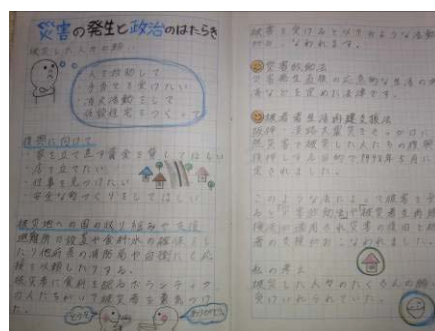 災害の発生と政治のはたらき
被災した人々の願い
・人を救助して
・手当てを受けたい
・消火活動をして
・仮設住宅をつくって
復興に向けて
・家を立て直す資金を貸してほしい
・店を立てたい
・仕事を見つけたい
・安全な町づくりをしてほしい
被災地への国の取り組みや支援
避難所の設置や食料や水の確保をし
たり他府県の消防局や自衛たちに
を依頼したりする。
被災者に食料を配るボランティア
の人たちがいて被災者を勇気づけ
た。
どうぞ
ありがとう
災害救助法
災害発生直後の応急的な生活の
などを定めた法律です。
被災者生活再建支援法
阪神・淡路大震災をきっかけに
然災害で被災した人たちの
する目的で1998年5月に
定されました。
このような法によって被害を
ると災害救助法や被災者生活再建
法が適用され災害の復旧と
者の支援がおこなわれました。
私の考え
被災した人々のたくさんの願い
受けいれられていた。